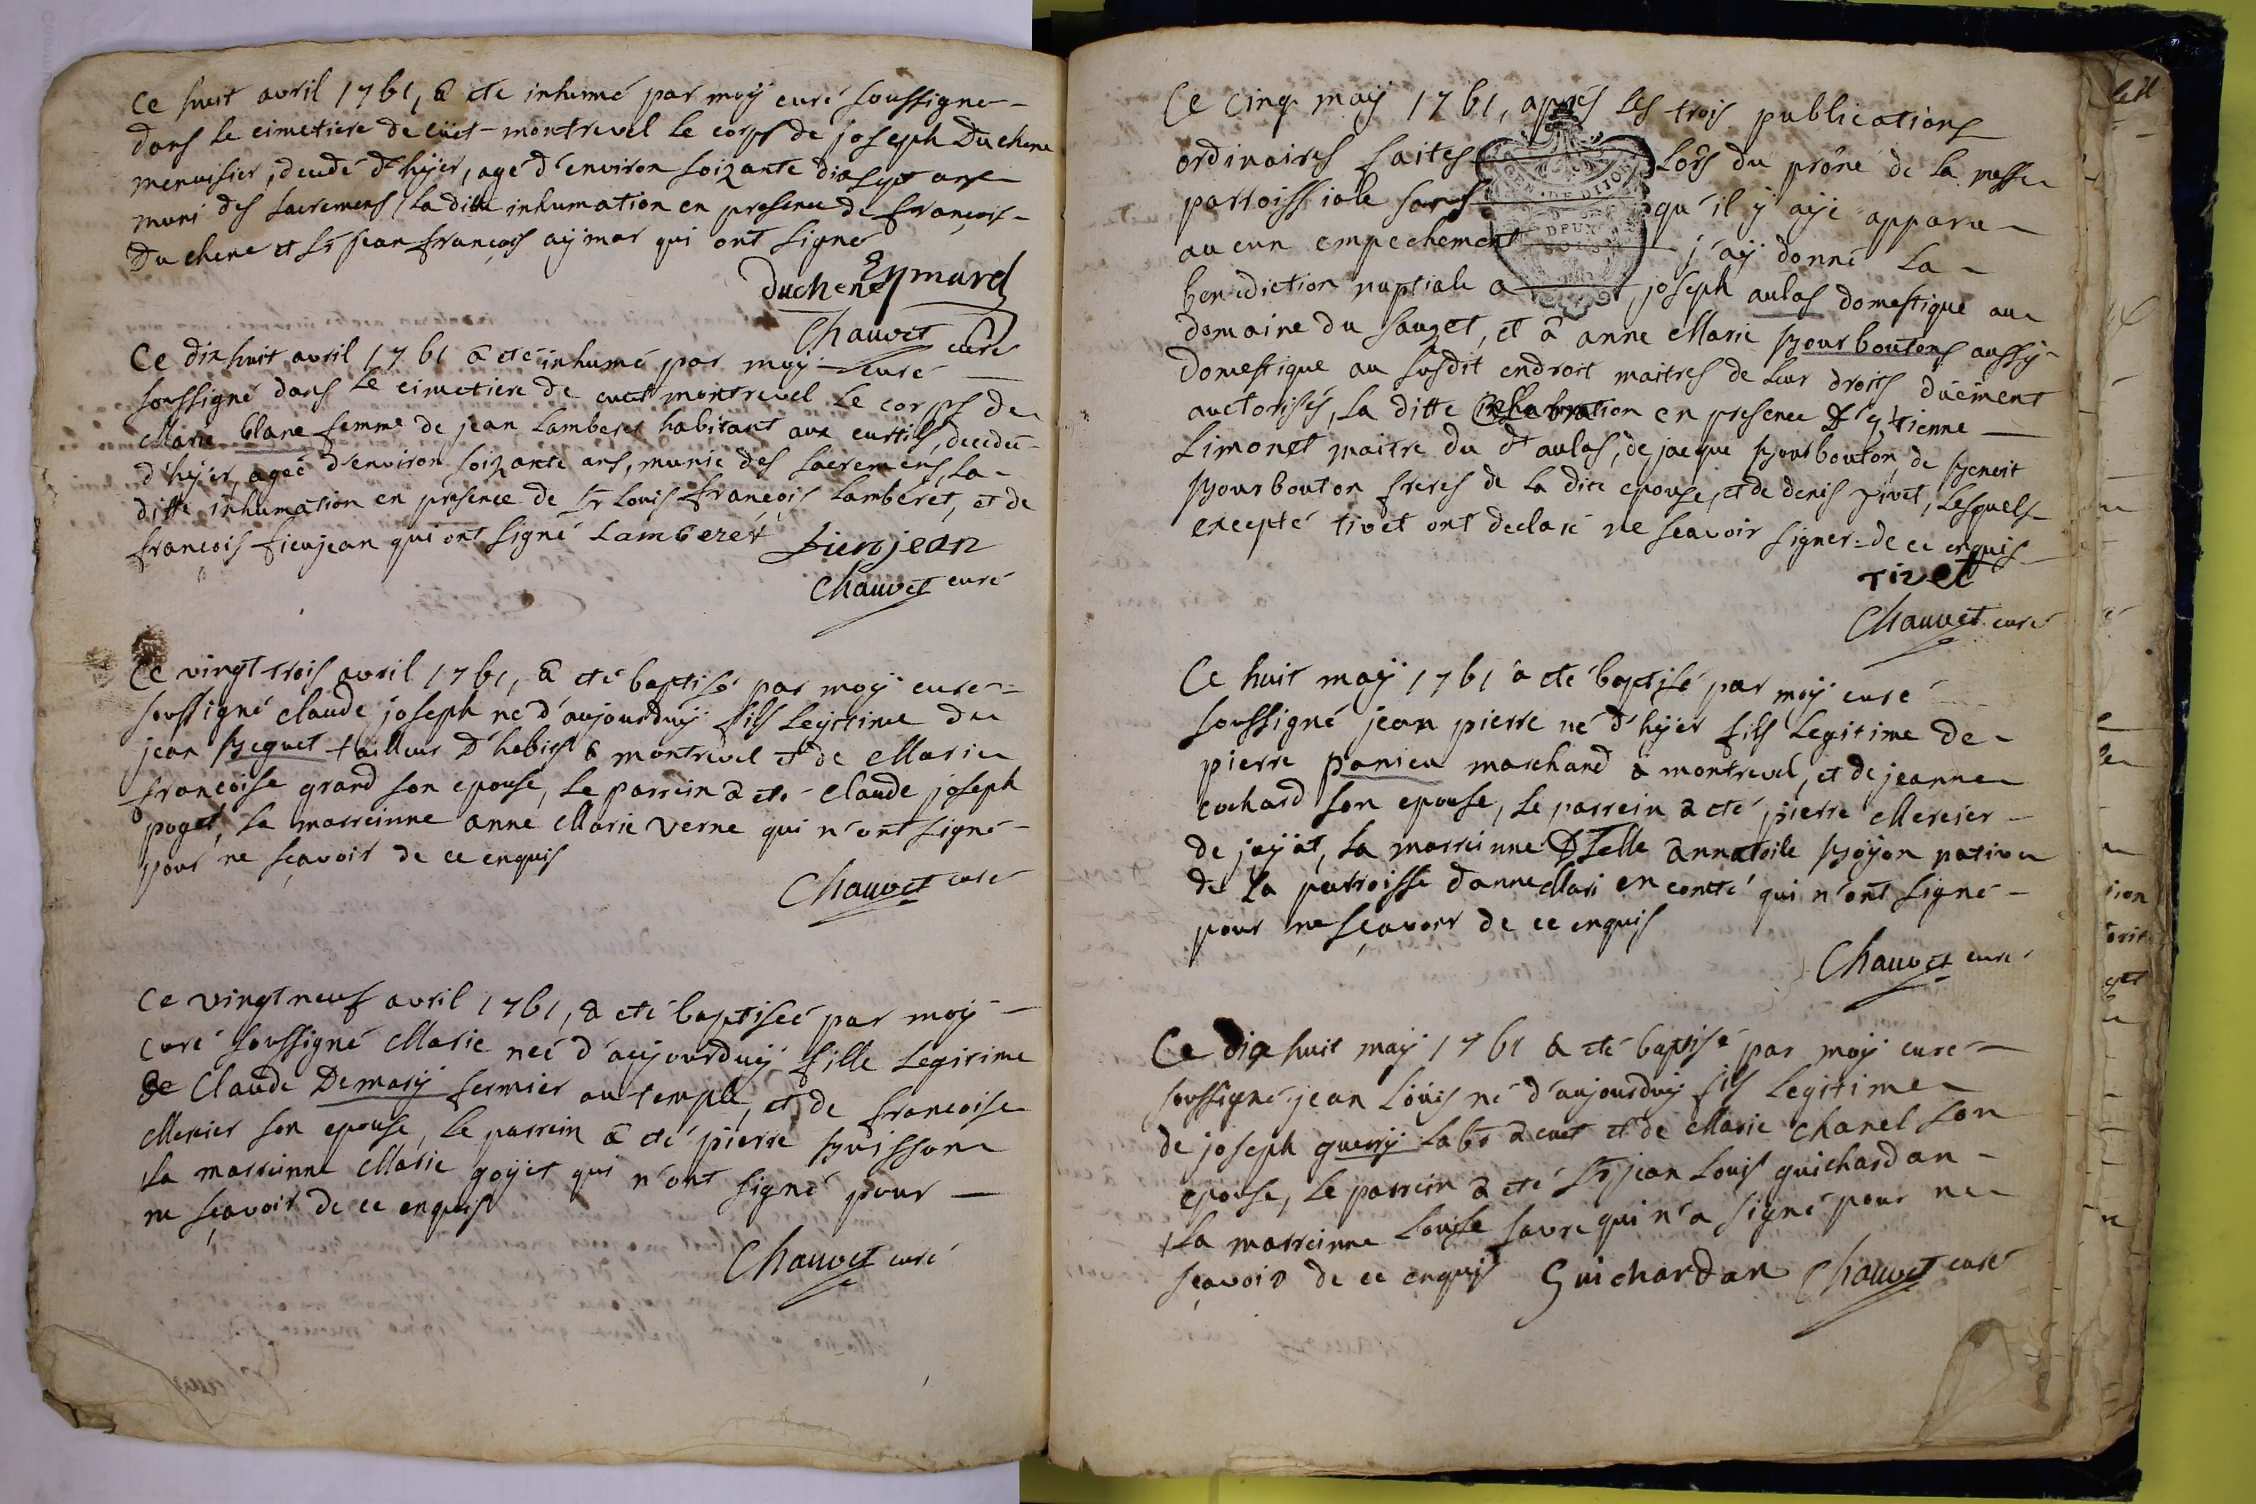 Ce huit avril 1761, a eté inhumé par moÿ curé soussigné
dans le cimetiere de cüet-montrevel le corps de joseph Duchene
menuisier, decedé d'hÿer, agé d'environ soixante dix sept ans
muni des sacremens, la ditte inhumation en presence de françois
Duchene et sr jean françois aÿmar qui ont signé
Duchene Eymard
Chauvet curé
Ce dix huit avril 1761 a eté inhumé par moÿ curé
soussigné dans le cimetiere de cuet montrevel le corps de
Marie blanc femme de jean Lamberet habitant aux curtils, decedeé
d'hÿer, ageé d'environ soixante ans, munie des sacremens, la
ditte inhumation en presence de sr Louis françois Lamberet, et de
françois fieujean qui ont signé Lamberet fieujean
Chauvet curé
Ce vingt trois avril 1761, a eté baptisé par moÿ curé
soussigné claude joseph né d'aujourduÿ fils legitime de
jean beguet tailleur d'habist a montrevel et de Marie
françoise grand son epouse, le parrein a eté claude joseph
poget, la marreinne anne Marie verne qui n'ont signé
pour ne sçavoir de ce enquis
Chauvet curé
Ce vingt neuf avril 1761, a eté baptiseé par moÿ
curé soussigné Marie neé d'aujourduÿ fille legitime
de Claude Demarÿ fermier au temple, et de françoise
Mercier son epouse, le parrein a eté pierre buisson
la marreinne Marie goÿet qui n'ont signé pour
ne sçavoir de ce enquis
Chauvet curé
Ce cinq maÿ 1761, aprés les trois publications
ordinaires faites lors du prône de la messe
parroissiale sans qu'il ÿ aÿe apparu
aucun empechement j'aÿ donné la
benediction nuptiale a joseph aulas domestique au
domaine du sauget, et a anne Marie bourboutons aussÿ
domestique au susdit endroit maitres de leur droits düement
auctorisés, la ditte celebration en presence d'etienne
Limonet maitre du dt aulas, de jacque bourbouton, de benoit
bourbouton freres de la dite epouse, et de denis tivet, lesquels
excepté tivet ont declaré ne sçavoir signer de ce enquis
Tivet
Chauvet curé
Ce huit maÿ 1761 a eté baptisé par moÿ curé
soussigné jean pierre né d'hÿer fils legitime de
pierre panieu marchand a montrevel, et de jeanne
cochard son epouse, le parrein a eté pierre Mercier
de jaÿat, la marreinne Dlle annatoile boÿon native
de la parroisse d'anne Mari en comté qui n'ont signé
pour ne sçavoir de ce enquis
Chauvet curé
Ce dix huit maÿ 1761 a eté baptisé par moÿ curé
soussigné jean Loüis né d'aujourduÿ fils legitime
de joseph guerrÿ labr a cuet et de Marie chanel son
epouse, le parrein a eté sr jean Louis guichardan
la marreinne Louise favre qui n'a signé pour ne
sçavoir de ce enquis Guichardan Chauvet curé